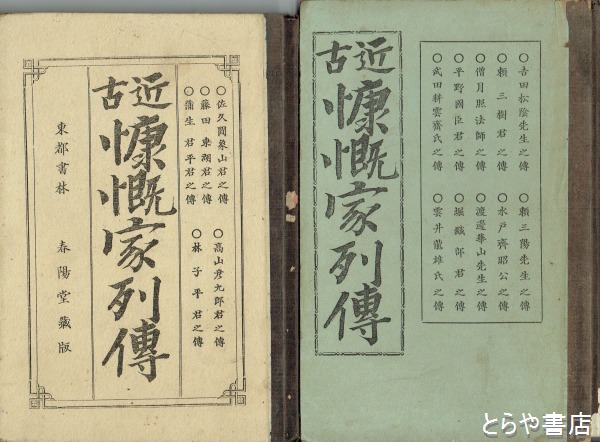 佐久間象山君之傳
藤田東湖君之傳
蒲生君平君之傳
高山彦九郎君之傳
林子平君之傳
近古
慷慨家列傳
東都書林　春陽堂藏版
吉田松陰先生之傳
頼三樹君之傳
僧月照法師之傳
平野國臣君之傳
武田耕雲齋氏之傳
頼三陽先生之傳
水戸齊昭公之傳
渡邊華山先生之傳
堀織部君之傳
雲井龍雄氏之傳
近古
慷慨家列傳
とらや書店